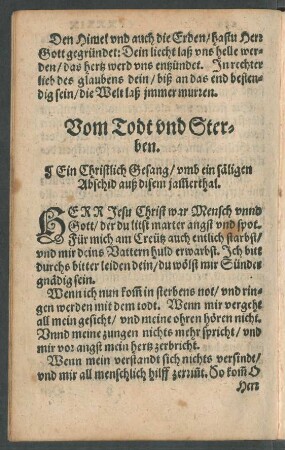 Den Himel vnd auch die Erden/ hastu Herr
Gott gegründet: Dein liecht laß vns helle wer-
den/ das hertz werd vns entzündet. In rechter
lieb des glaubens dein/ biß an das end besten-
dig sein/ die Welt laß jmmer murren.
Vom Todt vnd Ster-
ben.
¶ Ein Christlich Gesang/ vmb ein säligen
Abschid auß disem jamerthal.
HERR Jesu Christ war Mensch vnnd
Gott/ der du litst marter angst vnd spot.
Für mich am Creütz auch entlich starbst/
vnd mir deins Vattern huld erwarbst. Ich bitt
durchs bitter leiden dein/ du wölst mir Sünder
gnädig sein.
Wenn ich nun kom̃ in sterbens not/ vnd rin-
gen werden mit dem todt. Wenn mir vergeht
all mein gesicht/ vnd meine ohren hören nicht.
Vnnd meine zungen nichts mehr spricht/ vnd
mir vor angst mein hertz zerbricht.
Wenn mein verstandt sich nichts versindt/
vnd mir all menschlich hilff zerrint. So kom̃ O
Herr